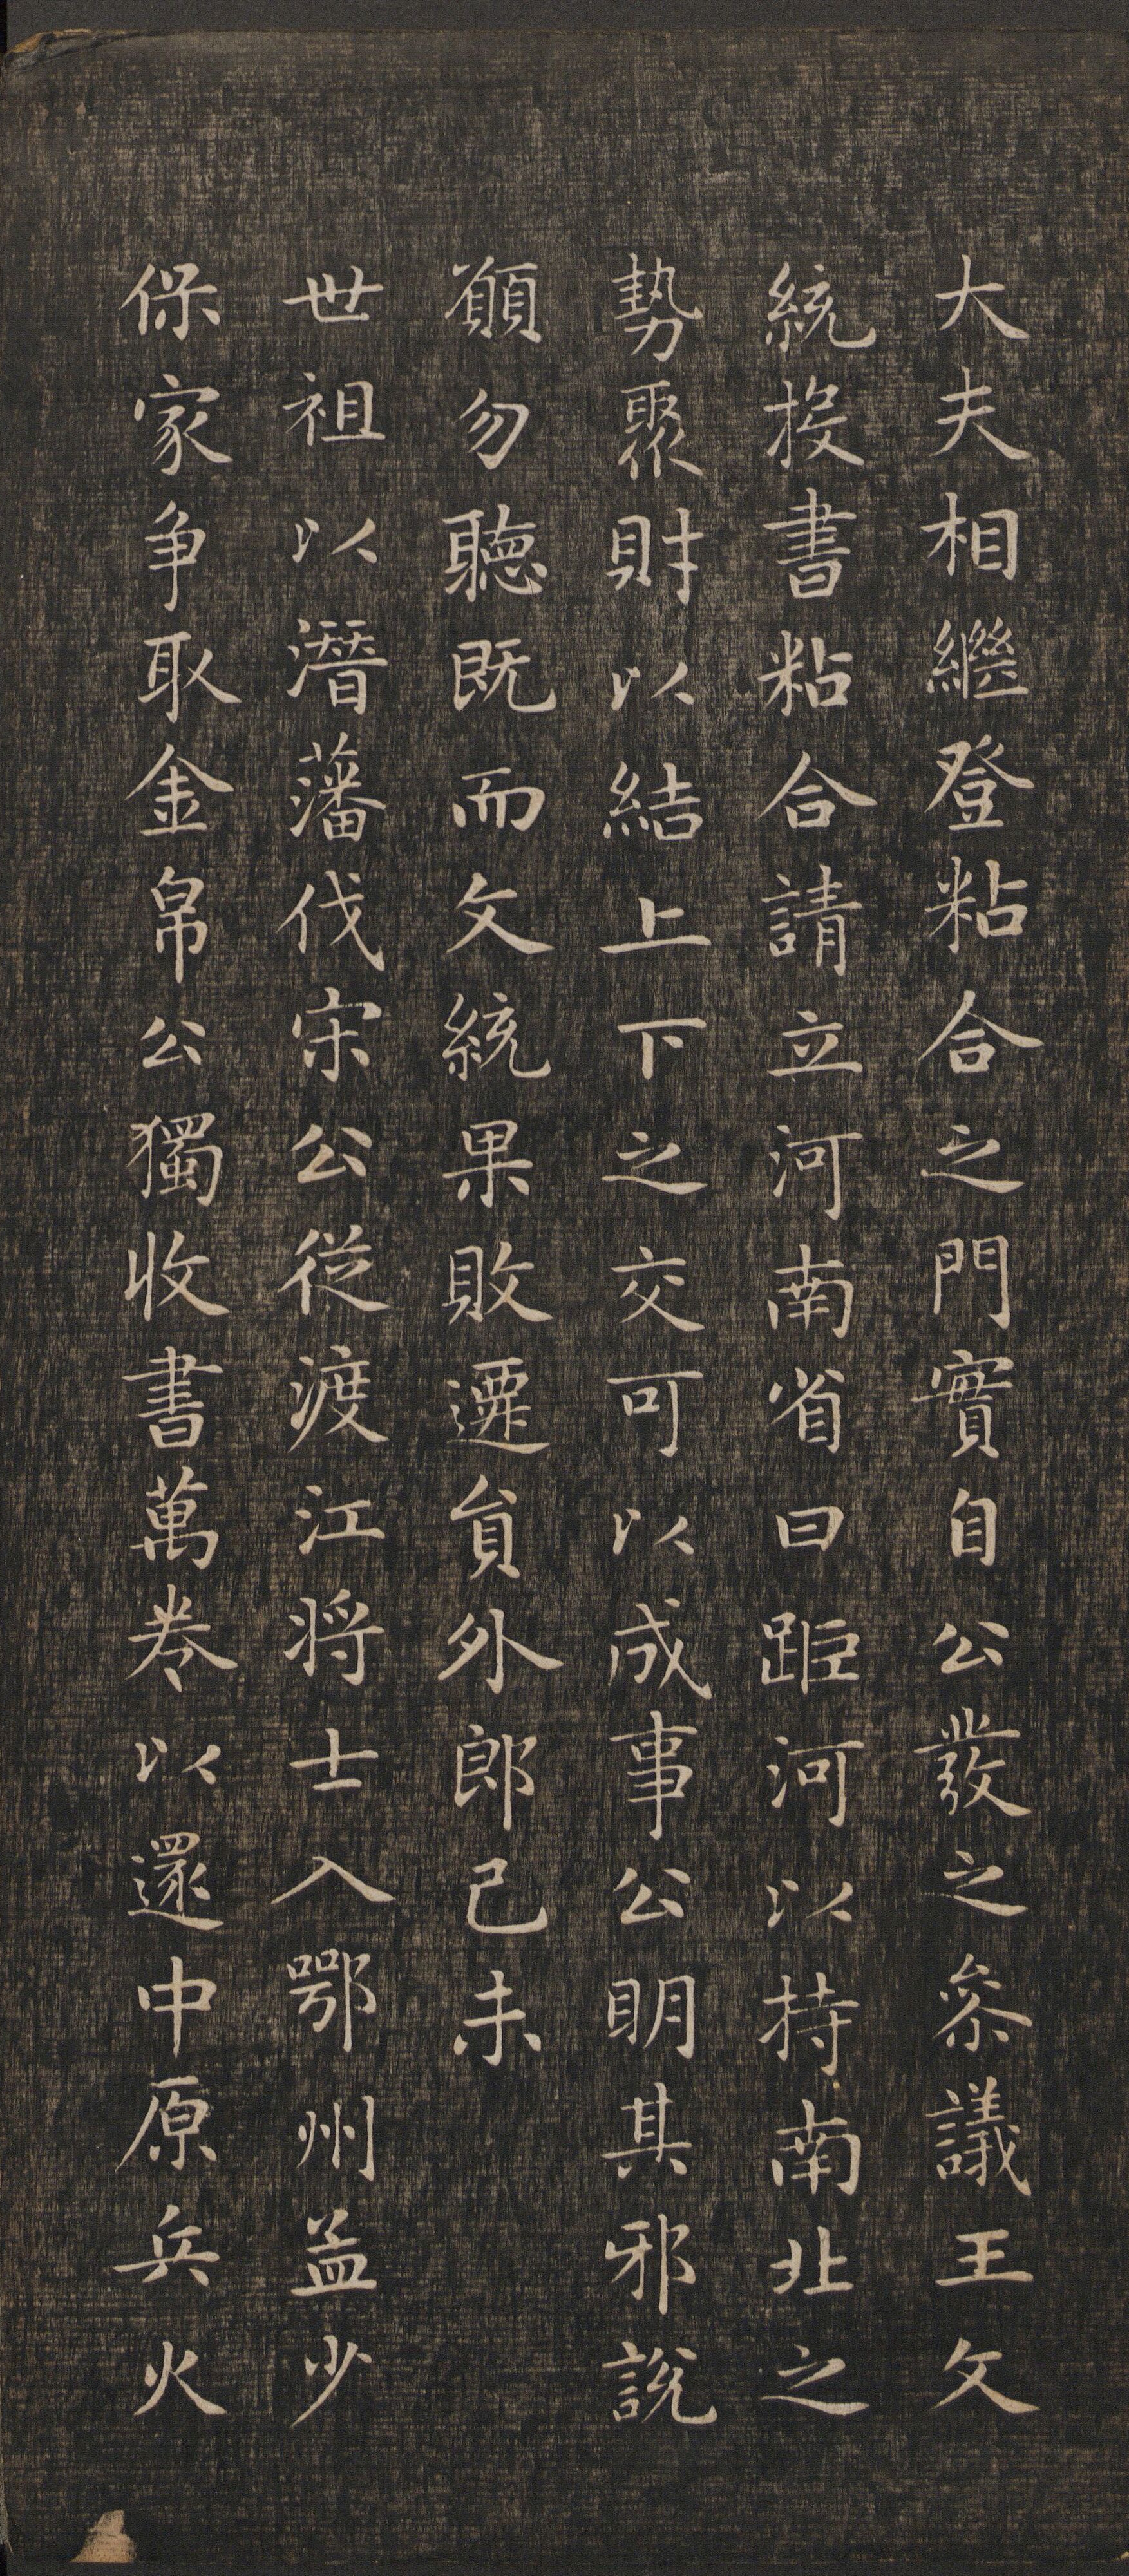 大夫相繼登粘合之門實自公發之叅議王文
統投書粘合請立河南省曰距河以持南北之
勢聚財以結上下之交可以成事公明其邪說
願勿聽既而文統果敗遷員外郎己未
世祖以潛藩伐宋公從渡江将士入鄂州孟少
保家争取金帛公獨收書萬卷以還中原兵火